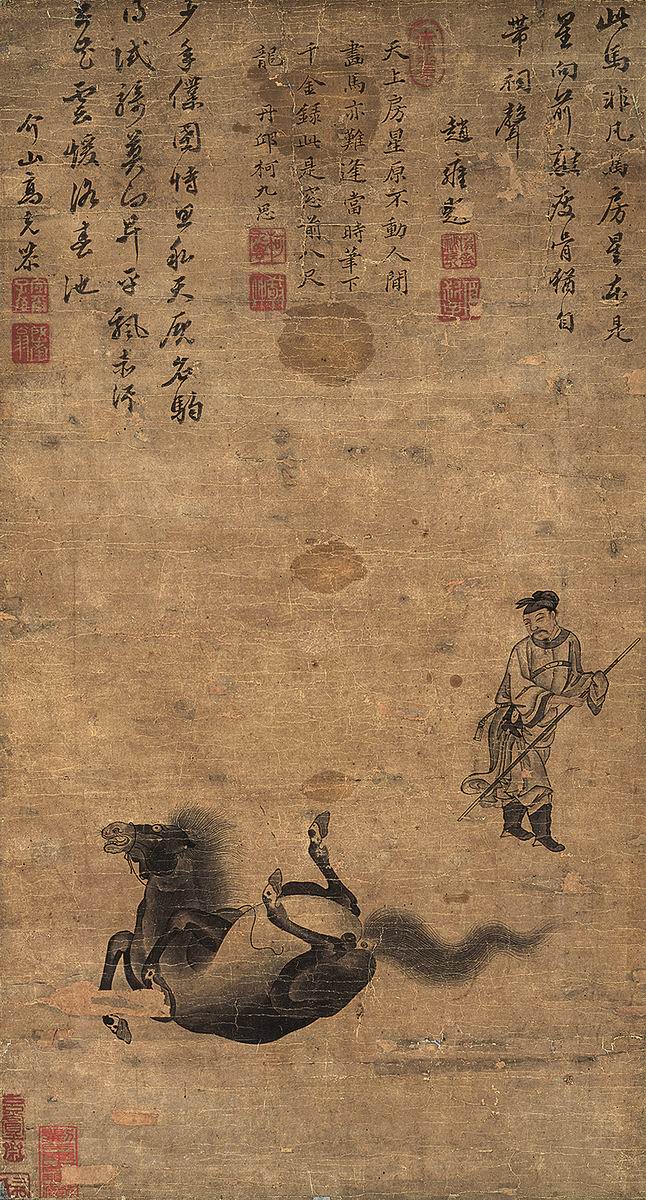 此馬非凡馬房星本是
星向前敲瘦骨猶自
帶銅聲
趙雍題
天上房星原不動人間
畫馬亦難逢當時筆下
千金錄此是窓前八尺
龍 丹邱柯九思
少年僕圉恃恩私天厩名駒
得試騎莫向昇平飄赤汗
五花雲煖浴春池
介山高克恭